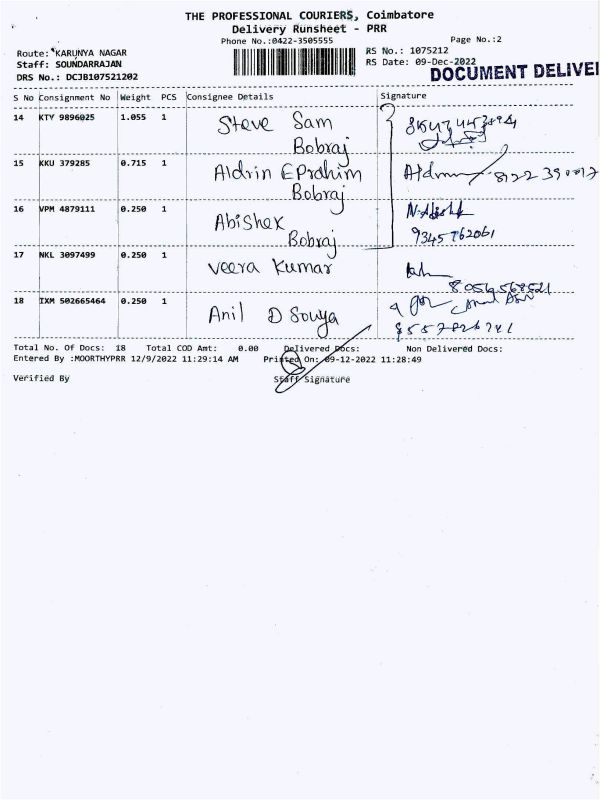 THE PROFESSIONAL COURIERS, Coimbatore
Delivery Runsheet - PRR
Phone No.:0422-3505555 Page No.:2
Route: KARUNYA NAGAR RS No.: 1075212
Staff: SOUNDARRAJAN RS Date: 09-Dec-2022
DRS No.: DCJB107521202 DOCUMENT DELIVE
S No Consignment No Weight PCS Consignee Details Signature
14 KTY 9896025 1.055 1 Steve Sam
Bobraj
15 KKU 379285 0.715 1 Aldrin EPrahim
Bobraj
16 VPM 4879111 0.250 1 Abishek
Bobraj 9345762061
17 NKL 3097499 0.250 1 Veera Kumar
8056568521
18 IXM 502665464 0.250 1 Anil D Souza
Total No. Of Docs: 18 Total COD Amt: 0.00 Delivered Docs: Non Delivered Docs:
Entered By :MOORTHYPRR 12/9/2022 11:29:14 AM Printed On: 09-12-2022 11:28:49
Verified By Staff Signature